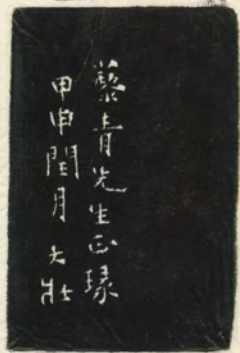 青先生正瑑
甲申閏月 大壯